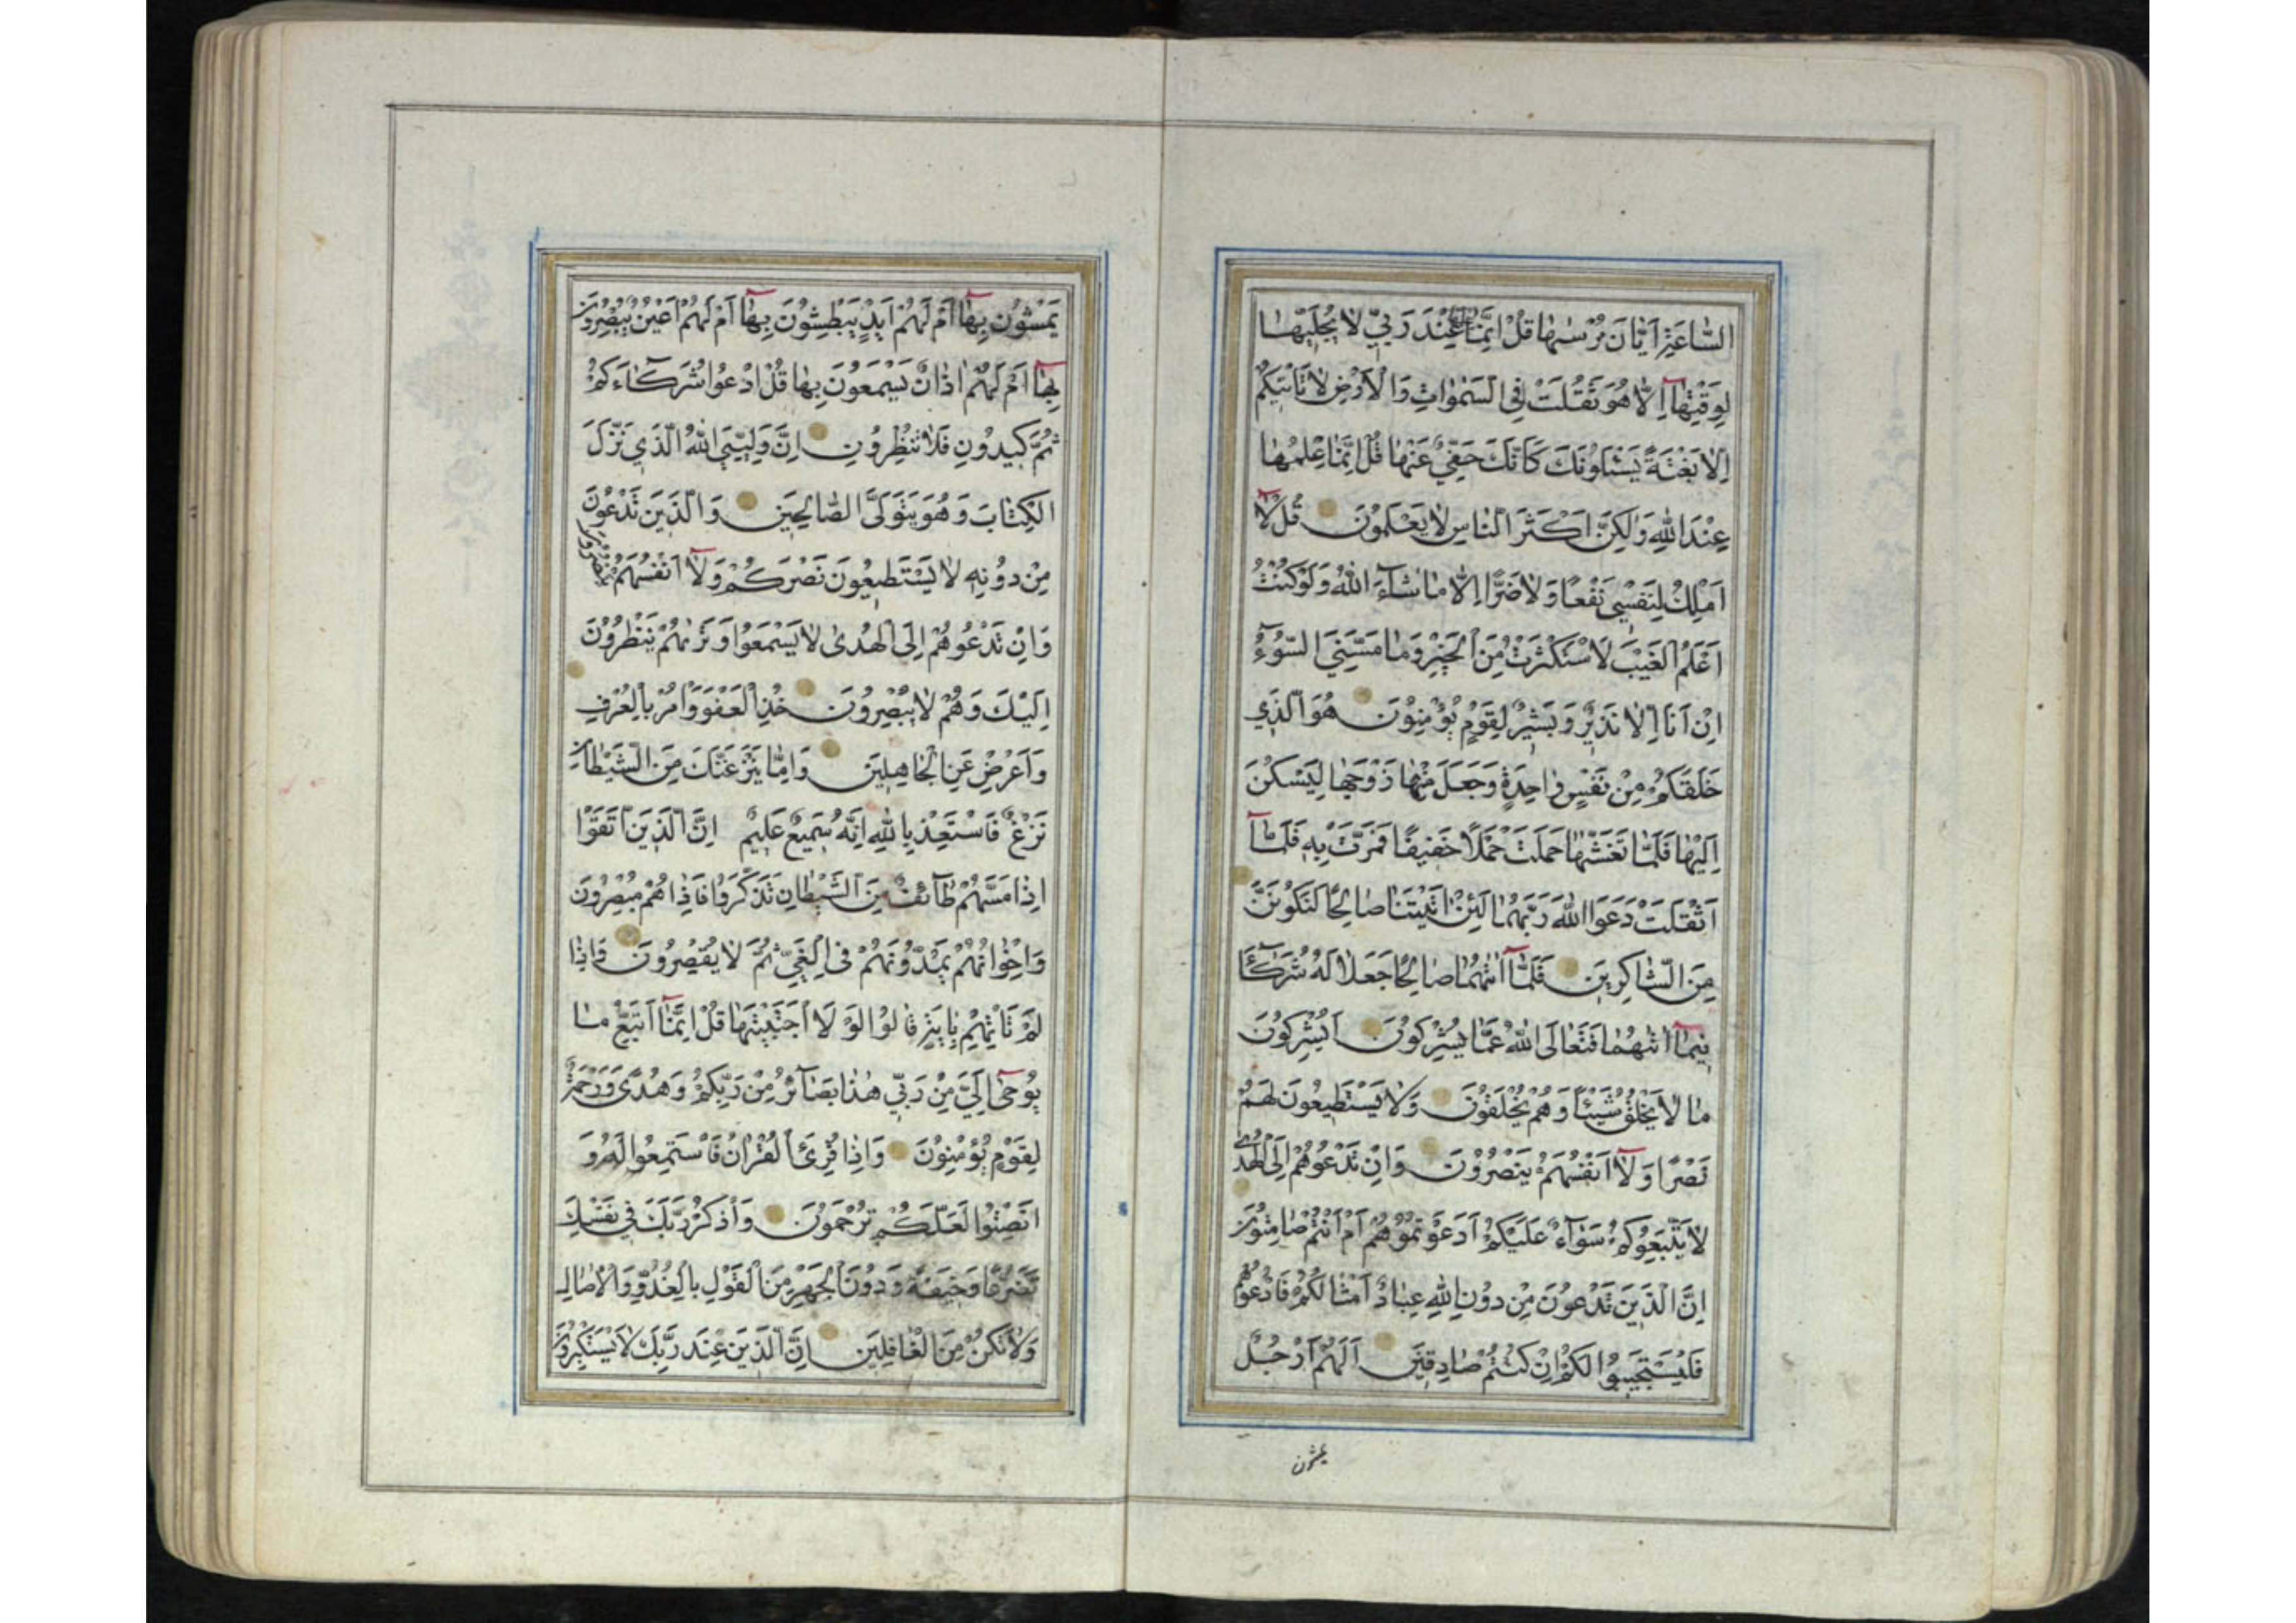 السَّاعَةِ اَيَّانَ مُرْسٰىهَا قُلْ اِنَّمَا عِلْمُهَا عِنْدَ رَبِّي لَا يُجَلِّيهَا
لِوَقْتِهَا اِلَّا هُوَ ثَقُلَتْ فِي السَّمٰوَاتِ وَالْاَرْضِ لَا تَاْتِيكُمْ
اِلَّا بَغْتَةً يَسْئَلُونَكَ كَاَنَّكَ حَفِيٌّ عَنْهَا قُلْ اِنَّمَا عِلْمُهَا
عِنْدَ اللّٰهِ وَلٰكِنَّ اَكْثَرَ النَّاسِ لَا يَعْلَمُونَ قُلْ لَا
اَمْلِكُ لِنَفْسِي نَفْعًا وَلَا ضَرًّا اِلَّا مَا شَاءَ اللّٰهُ وَلَوْ كُنْتُ
اَعْلَمُ الْغَيْبَ لَاسْتَكْثَرْتُ مِنَ الْخَيْرِ وَمَا مَسَّنِيَ السُّوءُ
اِنْ اَنَا اِلَّا نَذِيرٌ وَبَشِيرٌ لِقَوْمٍ يُؤْمِنُونَ هُوَ الَّذِي
خَلَقَكُمْ مِنْ نَفْسٍ وَاحِدَةٍ وَجَعَلَ مِنْهَا زَوْجَهَا لِيَسْكُنَ
اِلَيْهَا فَلَمَّا تَغَشّٰىهَا حَمَلَتْ حَمْلًا خَفِيفًا فَمَرَّتْ بِهِ فَلَمَّا
اَثْقَلَتْ دَعَوَا اللّٰهَ رَبَّهُمَا لَئِنْ اٰتَيْتَنَا صَالِحًا لَنَكُونَنَّ
مِنَ الشَّاكِرِينَ فَلَمَّا اٰتٰىهُمَا صَالِحًا جَعَلَا لَهُ شُرَكَاءَ
فِيمَا اٰتٰىهُمَا فَتَعَالَى اللّٰهُ عَمَّا يُشْرِكُونَ اَيُشْرِكُونَ
مَا لَا يَخْلُقُ شَيْئًا وَهُمْ يُخْلَقُونَ وَلَا يَسْتَطِيعُونَ لَهُمْ
نَصْرًا وَلَا اَنْفُسَهُمْ يَنْصُرُونَ وَاِنْ تَدْعُوهُمْ اِلَى الْهُدٰى
لَا يَتَّبِعُوكُمْ سَوَاءٌ عَلَيْكُمْ اَدَعَوْتُمُوهُمْ اَمْ اَنْتُمْ صَامِتُونَ
اِنَّ الَّذِينَ تَدْعُونَ مِنْ دُونِ اللّٰهِ عِبَادٌ اَمْثَالُكُمْ فَادْعُوهُمْ
فَلْيَسْتَجِيبُوا لَكُمْ اِنْ كُنْتُمْ صَادِقِينَ اَلَهُمْ اَرْجُلٌ
يمشون
يَمْشُونَ بِهَا اَمْ لَهُمْ اَيْدٍ يَبْطِشُونَ بِهَا اَمْ لَهُمْ اَعْيُنٌ يُبْصِرُونَ
بِهَا اَمْ لَهُمْ اٰذَانٌ يَسْمَعُونَ بِهَا قُلِ ادْعُوا شُرَكَاءَكُمْ
ثُمَّ كِيدُونِ فَلَا تُنْظِرُونِ اِنَّ وَلِيِّيَ اللّٰهُ الَّذِي نَزَّلَ
الْكِتَابَ وَهُوَ يَتَوَلَّى الصَّالِحِينَ وَالَّذِينَ تَدْعُونَ
مِنْ دُونِهِ لَا يَسْتَطِيعُونَ نَصْرَكُمْ وَلَا اَنْفُسَهُمْ يَنْصُرُونَ
وَاِنْ تَدْعُوهُمْ اِلَى الْهُدٰى لَا يَسْمَعُوا وَتَرٰىهُمْ يَنْظُرُونَ
اِلَيْكَ وَهُمْ لَا يُبْصِرُونَ خُذِ الْعَفْوَ وَاْمُرْ بِالْعُرْفِ
وَاَعْرِضْ عَنِ الْجَاهِلِينَ وَاِمَّا يَنْزَغَنَّكَ مِنَ الشَّيْطَانِ
نَزْغٌ فَاسْتَعِذْ بِاللّٰهِ اِنَّهُ سَمِيعٌ عَلِيمٌ اِنَّ الَّذِينَ اتَّقَوْا
اِذَا مَسَّهُمْ طَائِفٌ مِنَ الشَّيْطَانِ تَذَكَّرُوا فَاِذَا هُمْ مُبْصِرُونَ
وَاِخْوَانُهُمْ يَمُدُّونَهُمْ فِي الْغَيِّ ثُمَّ لَا يُقْصِرُونَ وَاِذَا
لَمْ تَاْتِهِمْ بِاٰيَةٍ قَالُوا لَوْلَا اجْتَبَيْتَهَا قُلْ اِنَّمَا اَتَّبِعُ مَا
يُوحٰى اِلَيَّ مِنْ رَبِّي هٰذَا بَصَائِرُ مِنْ رَبِّكُمْ وَهُدًى وَرَحْمَةٌ
لِقَوْمٍ يُؤْمِنُونَ وَاِذَا قُرِئَ الْقُرْاٰنُ فَاسْتَمِعُوا لَهُ وَ
اَنْصِتُوا لَعَلَّكُمْ تُرْحَمُونَ وَاذْكُرْ رَبَّكَ فِي نَفْسِكَ
تَضَرُّعًا وَخِيفَةً وَدُونَ الْجَهْرِ مِنَ الْقَوْلِ بِالْغُدُوِّ وَالْاٰصَالِ
وَلَا تَكُنْ مِنَ الْغَافِلِينَ اِنَّ الَّذِينَ عِنْدَ رَبِّكَ لَا يَسْتَكْبِرُونَ